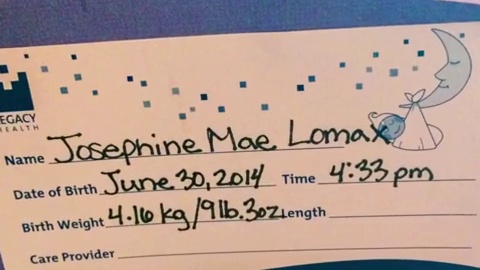 LEGACY
HEALTH
Name Josephine Mae Lomax
Date of Birth June 30, 2014 Time 4:33 pm
Birth Weight 4.16 kg/9 lb. 3oz. Length
Care Provider